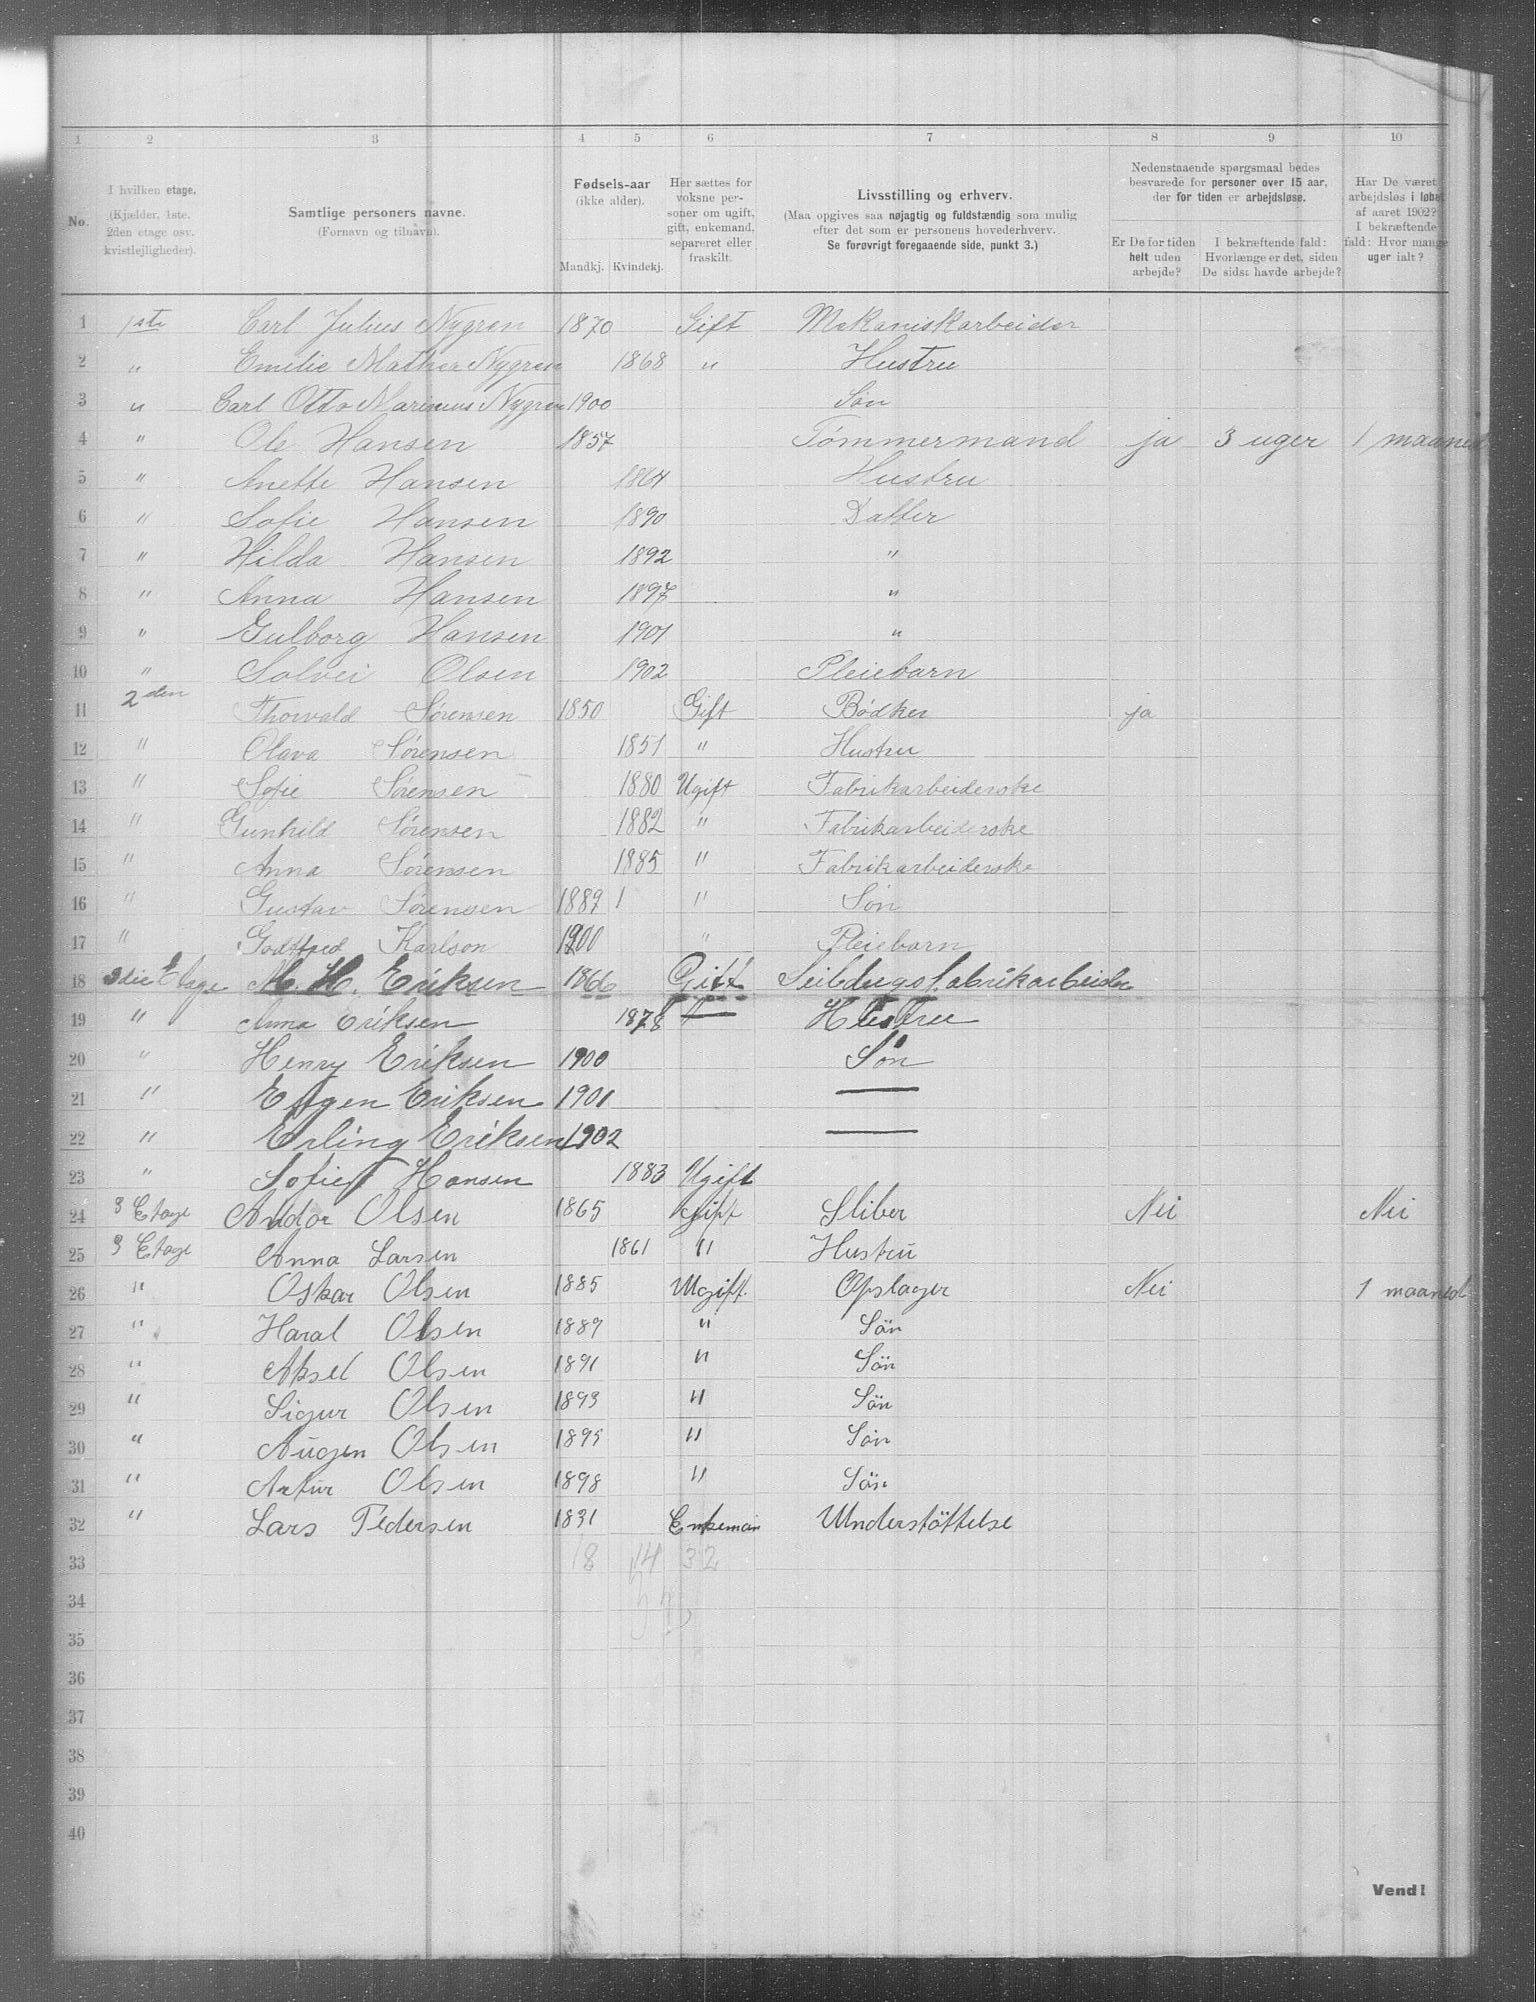 1 2 3 4 5 6 7 8 9 10
No.
I hvilken etage.
(Kjælder, 1ste.
2den etage osv.
kvistlejligheder).
Samtlige personers navne.
(Fornavn og tilnavn).
Fødsels-aar
(ikke alder).
Mandkj. Kvindekj.
Her sættes for
voksne per-
soner om ugift,
gift, enkemand,
separeret eller
fraskilt.
Livsstilling og erhverv.
(Maa opgives saa nøjagtig og fuldstændig som mulig
efter det som er personens hovederhverv.
Se forøvrigt foregaaende side, punkt 3.)
Nedenstaaende spørgsmaal bedes
besvarede for personer over 15 aar,
der for tiden er arbejdsløse.
Er De for tiden
helt uden
arbejde?
I bekræftende fald:
Hvorlænge er det, siden
De sidst havde arbejde?
Har De været
arbejdsløs i løbet
af aaret 1902?
I bekræftende
fald: Hvor mange
uger ialt?
1 1ste Carl Julius Nygren 1870 Gift Mekaniskarbeider
2 " Emilie Mathea Nygren 1868 " Hustru
3 " Carl Otto Marinius Nygren 1900 Søn
4 " Ole Hansen 1857 Tømmermand ja 3 uger 1 maaned
5 " Anette Hansen 1864 Hustru
6 " Sofie Hansen 1890 Datter
7 " Hilda Hansen 1892 "
8 " Anna Hansen 1897 "
9 " Gulborg Hansen 1901 "
10 " Solvei Olsen 1902 Pleiebarn
11 2den Thorvald Sørensen 1850 Gift Bødker ja
12 " Olava Sørensen 1851 " Hustru
13 " Sofie Sørensen 1880 Ugift Fabrikarbeiderske
14 " Gunhild Sørensen 1882 " Fabrikarbeiderske
15 " Anna Sørensen 1885 " Fabrikarbeiderske
16 " Gustav Sørensen 1889 1 " Søn
17 " Godtfred Karlson 1900 " Pleiebarn
18 3die Etage M. H. Eriksen 1866 Gift Seildugsfabrikarbeider
19 " Anna Eriksen 1878 " Hustru
20 " Henry Eriksen 1900 Søn
21 " Eugen Eriksen 1901 —
22 " Erling Eriksen 1902 —
23 " Sofie Hansen 1883 Ugift
24 3 Etage Andor Olsen 1865 gift Sliber Nei Nei
25 3 Etage Anna Larsen 1861 " Hustru
26 " Oskar Olsen 1885 Ugift Opslager Nei 1 maaned
27 " Haral Olsen 1889 " Sön
28 " Aksel Olsen 1891 " Sön
29 " Sigur Olsen 1893 " Sön
30 " Augen Olsen 1895 " Sön
31 " Artur Olsen 1898 " Sön
32 " Lars Pedersen 1831 Enkeman Understöttelse
33 18 14 32
34
35
36
37
38
39
40
Vend!